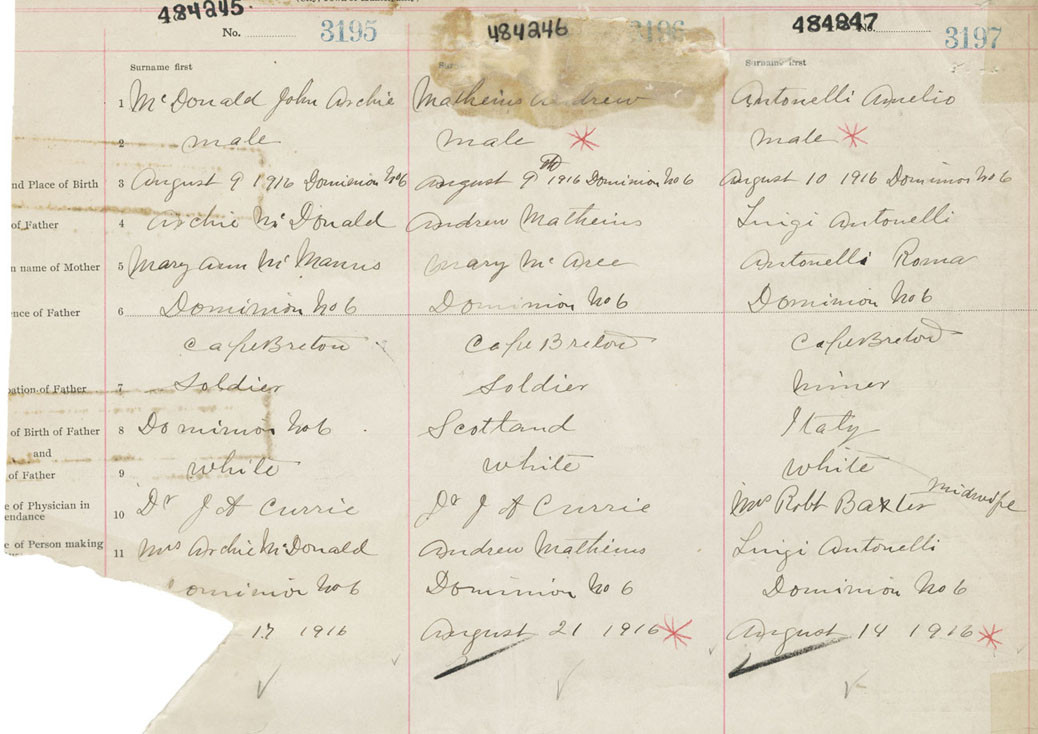 484245. 484246 484247
No. 3195 3196 No. 3197
Surname first Surname first
1 McDonald John Archie Matheins Andrew Antonelli Amelio
2 male male male
nd Place of Birth 3 August 9 1916 Dominion No 6 August 9th 1916 Dominion No 6 August 10 1916 Dominion No 6
of Father 4 Archie McDonald Andrew Matheins Luigi Antonelli
n name of Mother 5 Mary Ann McManus Mary McAree Antonelli Roma
ence of Father 6 Dominion No 6 Dominion No 6 Dominion No 6
Cape Breton Cape Breton Cape Breton
pation of Father 7 Soldier Soldier Miner
of Birth of Father 8 Dominion No 6 Scotland Italy
and
of Father 9 white white white
e of Physician in
endance 10 Dr J A Currie Dr J A Currie Mrs Robt Baxter midwife
e of Person making
11 Mrs Archie McDonald Andrew Matheins Luigi Antonelli
ominion No 6 Dominion No 6 Dominion No 6
17 1916 August 21 1916 August 14 1916